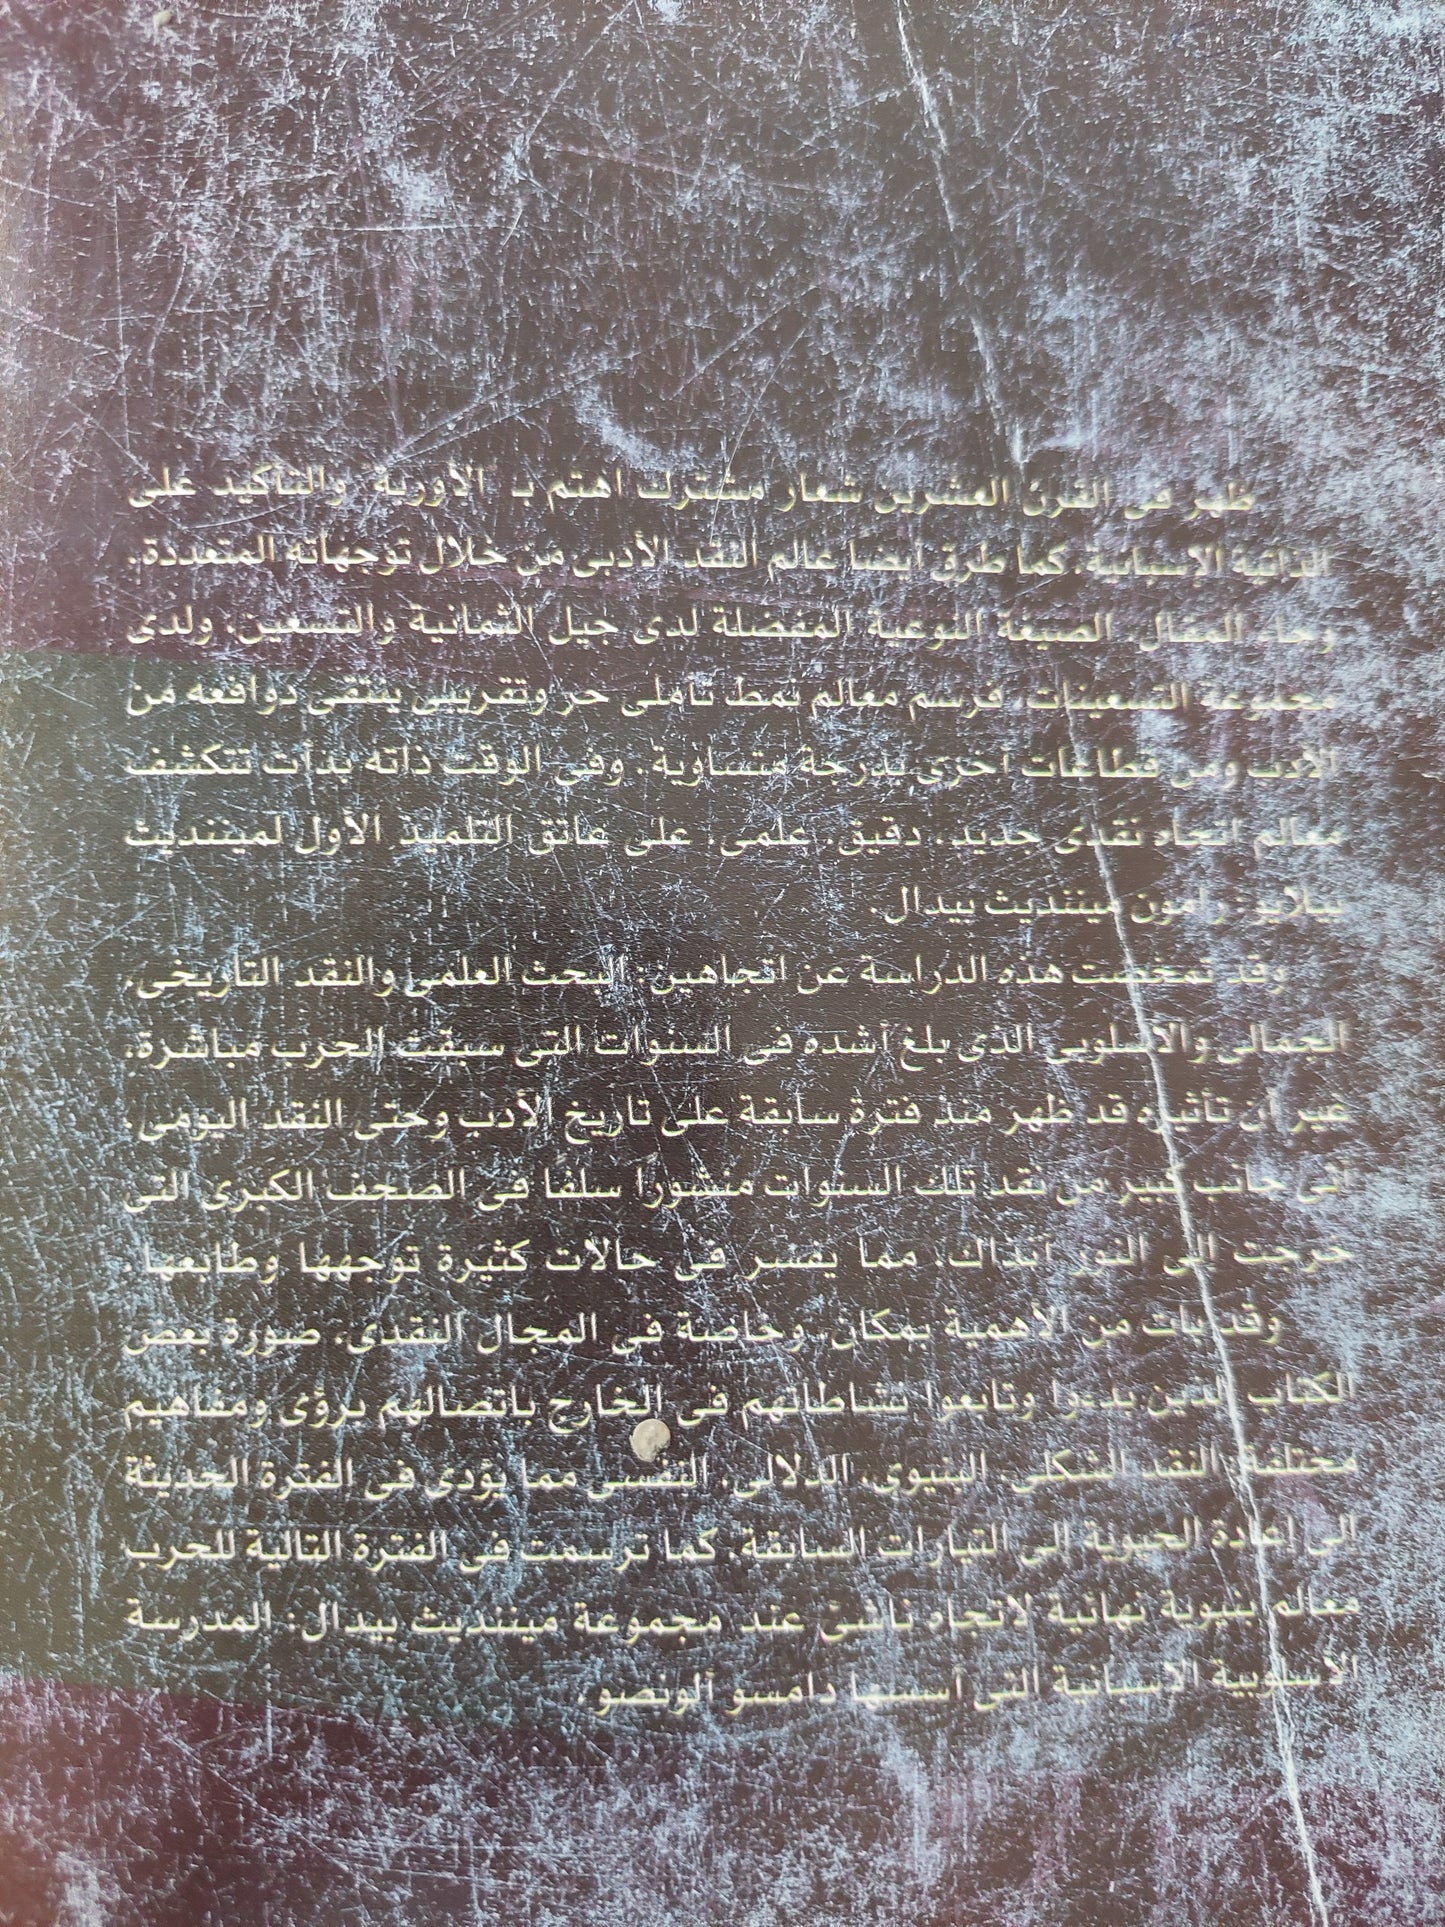 ظهر فى القرن العشرين شعار مشترك اهتم بـ الأوربة والتأكيد على
الذاتية الإسبانية. كما طرق أيضا عالم النقد الأدبى من خلال توجهاته المتعددة.
وجاء المقال، الصيغة النوعية المفضلة لدى جيل الثمانية والتسعين، ولدى
مجموعة التسعينات، فرسم معالم نمط تأملى حر وتقريبى ينتقى دوافعه من
الأدب ومن قطاعات أخرى بدرجة متساوية. وفى الوقت ذاته بدأت تتكشف
معالم اتجاه نقدى جديد، دقيق، علمى، على عاتق التلميذ الأول لميننديث
بيلايو: رامون ميننديث بيدال.
وقد تمخضت هذه الدراسة عن اتجاهين: البحث العلمى والنقد التاريخى،
الجمالى والأسلوبى الذى بلغ أشده فى السنوات التى سبقت الحرب مباشرة،
غير أن تأثيره قد ظهر منذ فترة سابقة على تاريخ الأدب وحتى النقد اليومى.
أتى جانب كبير من نقد تلك السنوات منشورا سلفا فى الصحف الكبرى التى
خرجت إلى النور آنذاك، مما يفسر فى حالات كثيرة توجهها وطابعها.
وقد بات من الأهمية بمكان، وخاصة فى المجال النقدى، صورة بعض
الكتاب الذين بدءوا وتابعوا نشاطاتهم فى الخارج باتصالهم برؤى ومفاهيم
مختلفة: النقد الشكلى، البنيوى، الدلالى، النفسى مما يؤدى فى الفترة الحديثة
إلى إعادة الحيوية إلى التيارات السابقة. كما ترسمت فى الفترة التالية للحرب
معالم بنيوية نهائية لاتجاه ناشئ عند مجموعة ميننديث بيدال: المدرسة
الأسلوبية الإسبانية التى أسسها دامسو ألونصو.